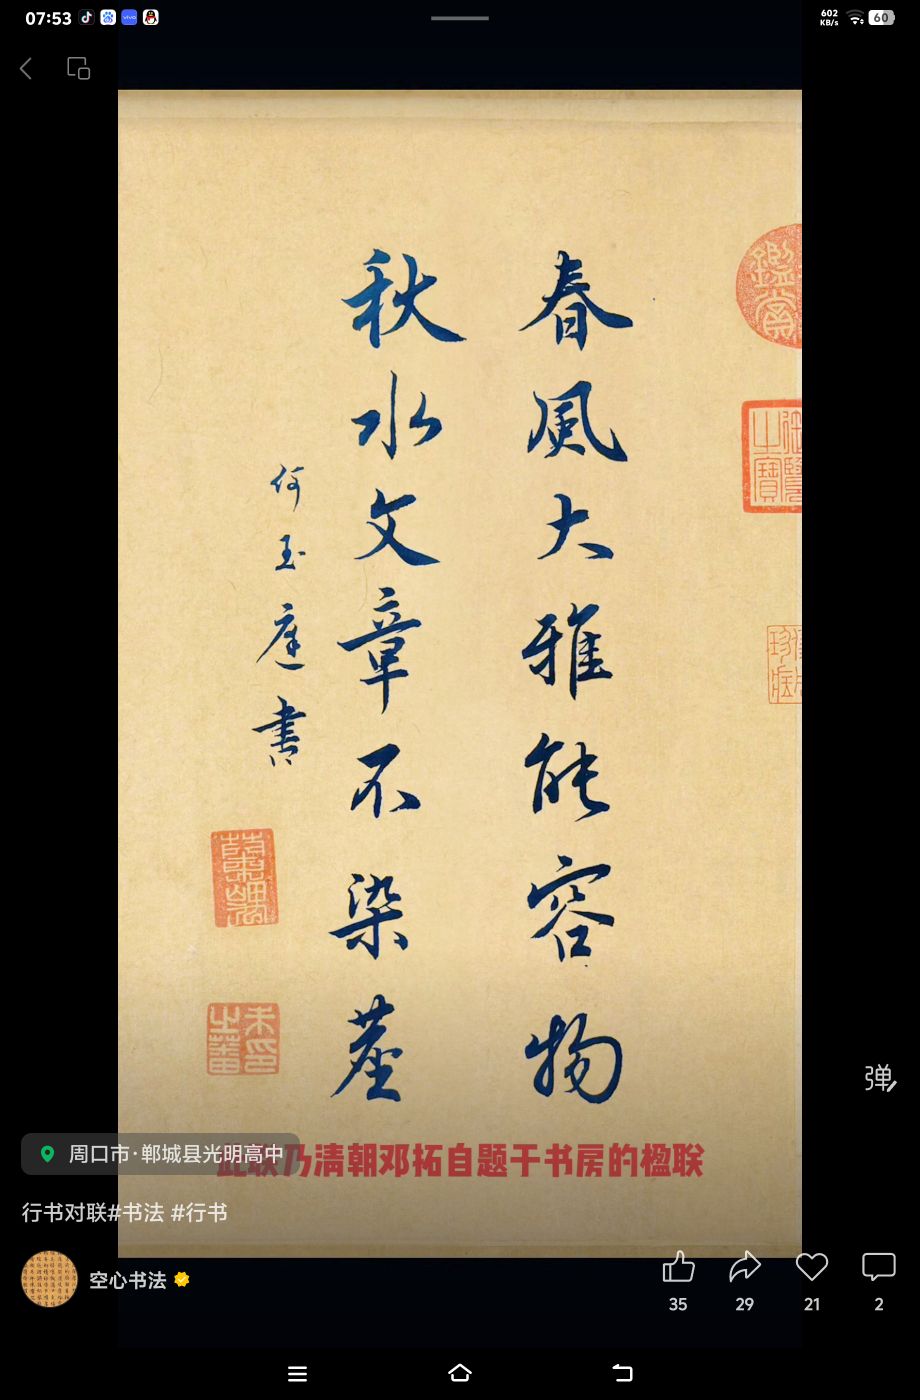 07:53
602
KB/s
60
春風大雅能容物
秋水文章不染塵
何玉庭書
鑑賞
御覽之寶
朱之蕃印
弹
周口市·郸城县光明高中
此联乃清朝邓拓自题于书房的楹联
行书对联#书法 #行书
空心书法
35
29
21
2